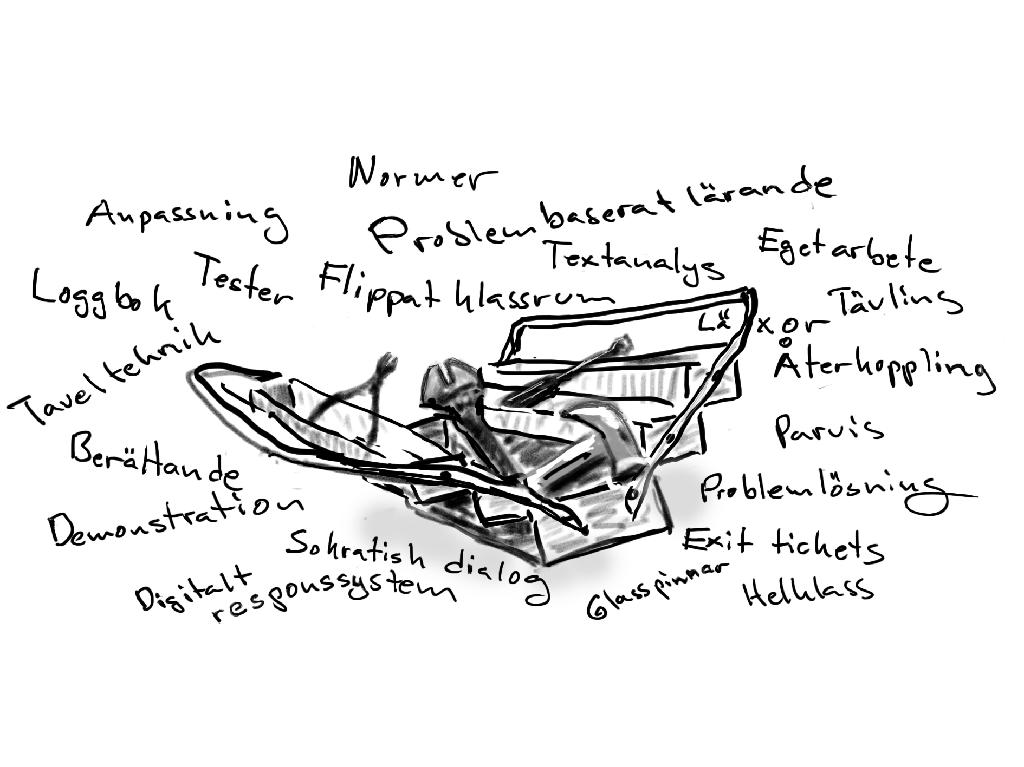 Normer
Anpassning
Problembaserat lärande
Textanalys
Eget arbete
Loggbok
Tester
Flippat klassrum
Tävling
Läxor
Återkoppling
Tavelteknik
Parvis
Berättande
Problemlösning
Demonstration
Sokratisk dialog
Exit tickets
Digitalt
responssystem
Glasspinnar
Helklass